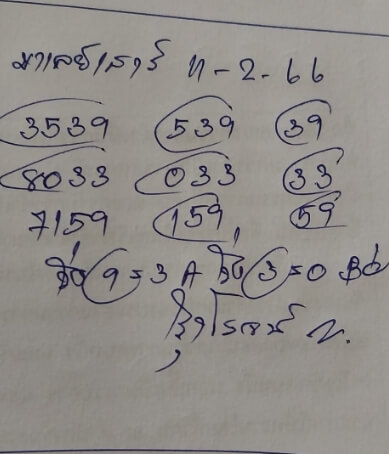 มาเลย์เสาร์ 11-2-66
3539 539 39
8033 033 33
7159 159 59
วิ่ง 9=3 A วิ่ง 3=0